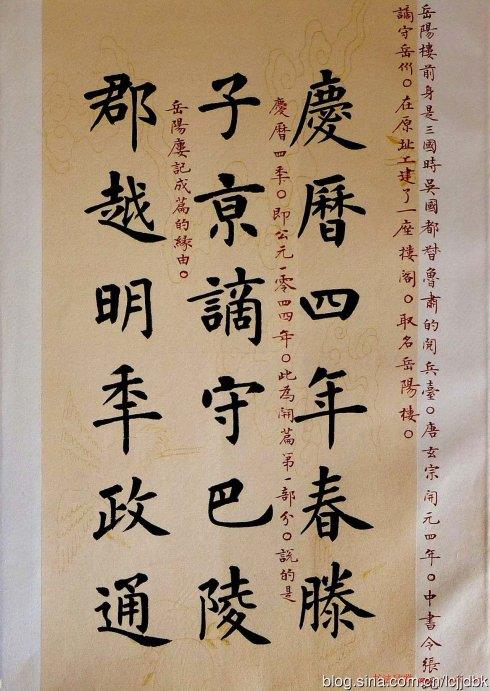 岳陽樓前身是三國時吳國都督魯肅的閱兵臺。唐玄宗開元四年。中書令張
謫守岳州。在原址上建了一座樓閣。取名岳陽樓。
慶曆四年春滕
慶曆四年。即公元一零四四年。此為開篇第一部分。說的是
子京謫守巴陵
岳陽樓記成篇的緣由。
郡越明年政通
blog.sina.com.cn/lcjjdbk